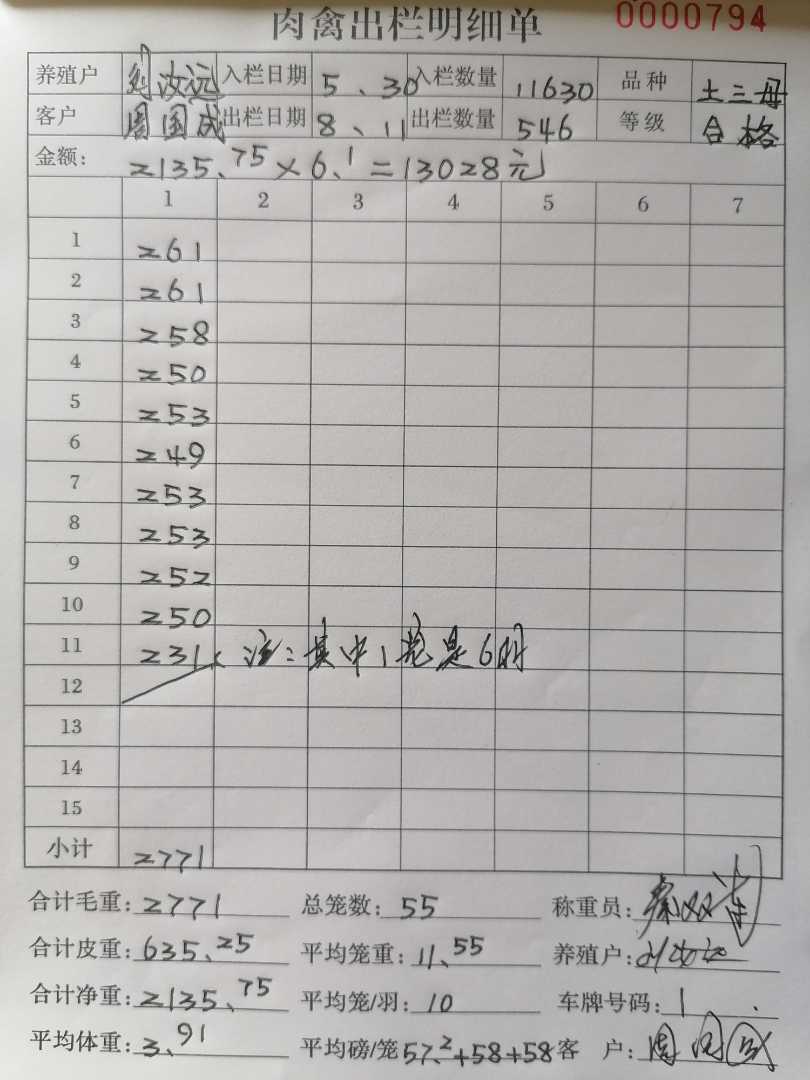 肉禽出栏明细单 0000794
养殖户 刘汝远 入栏日期 5、30 入栏数量 11630 品种 土三母
客户 周国成 出栏日期 8、11 出栏数量 546 等级 合格
金额: 2135.75×6.1=13028元
1 2 3 4 5 6 7
1 261
2 261
3 258
4 250
5 253
6 249
7 253
8 253
9 252
10 250
11 231 注:其中1笼是6只
12
13
14
15
小计 2771
合计毛重: 2771 总笼数: 55 称重员:
合计皮重: 635.25 平均笼重: 11.55 养殖户:
合计净重: 2135.75 平均笼/羽: 10 车牌号码: 1
平均体重: 3.91 平均磅/笼 57.2+58+58 客 户: 周国成